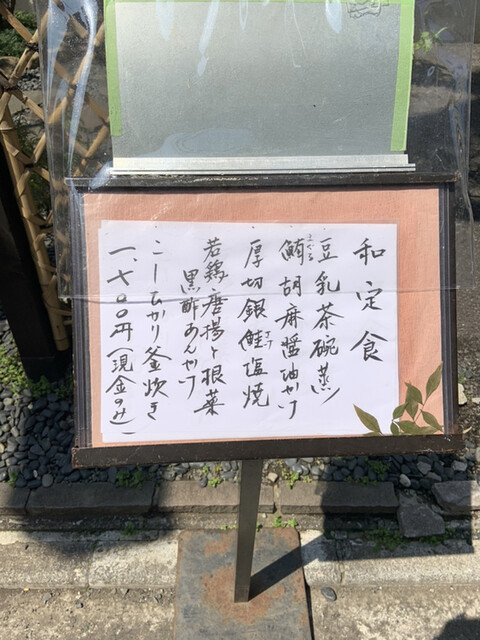 和定食
豆乳茶碗蒸し
鮪胡麻醤油かけ
まぐろ
厚切銀鮭塩焼
若鶏唐揚と根菜
黒酢あんかけ
こしひかり釜炊き
一、七〇〇円(現金のみ)